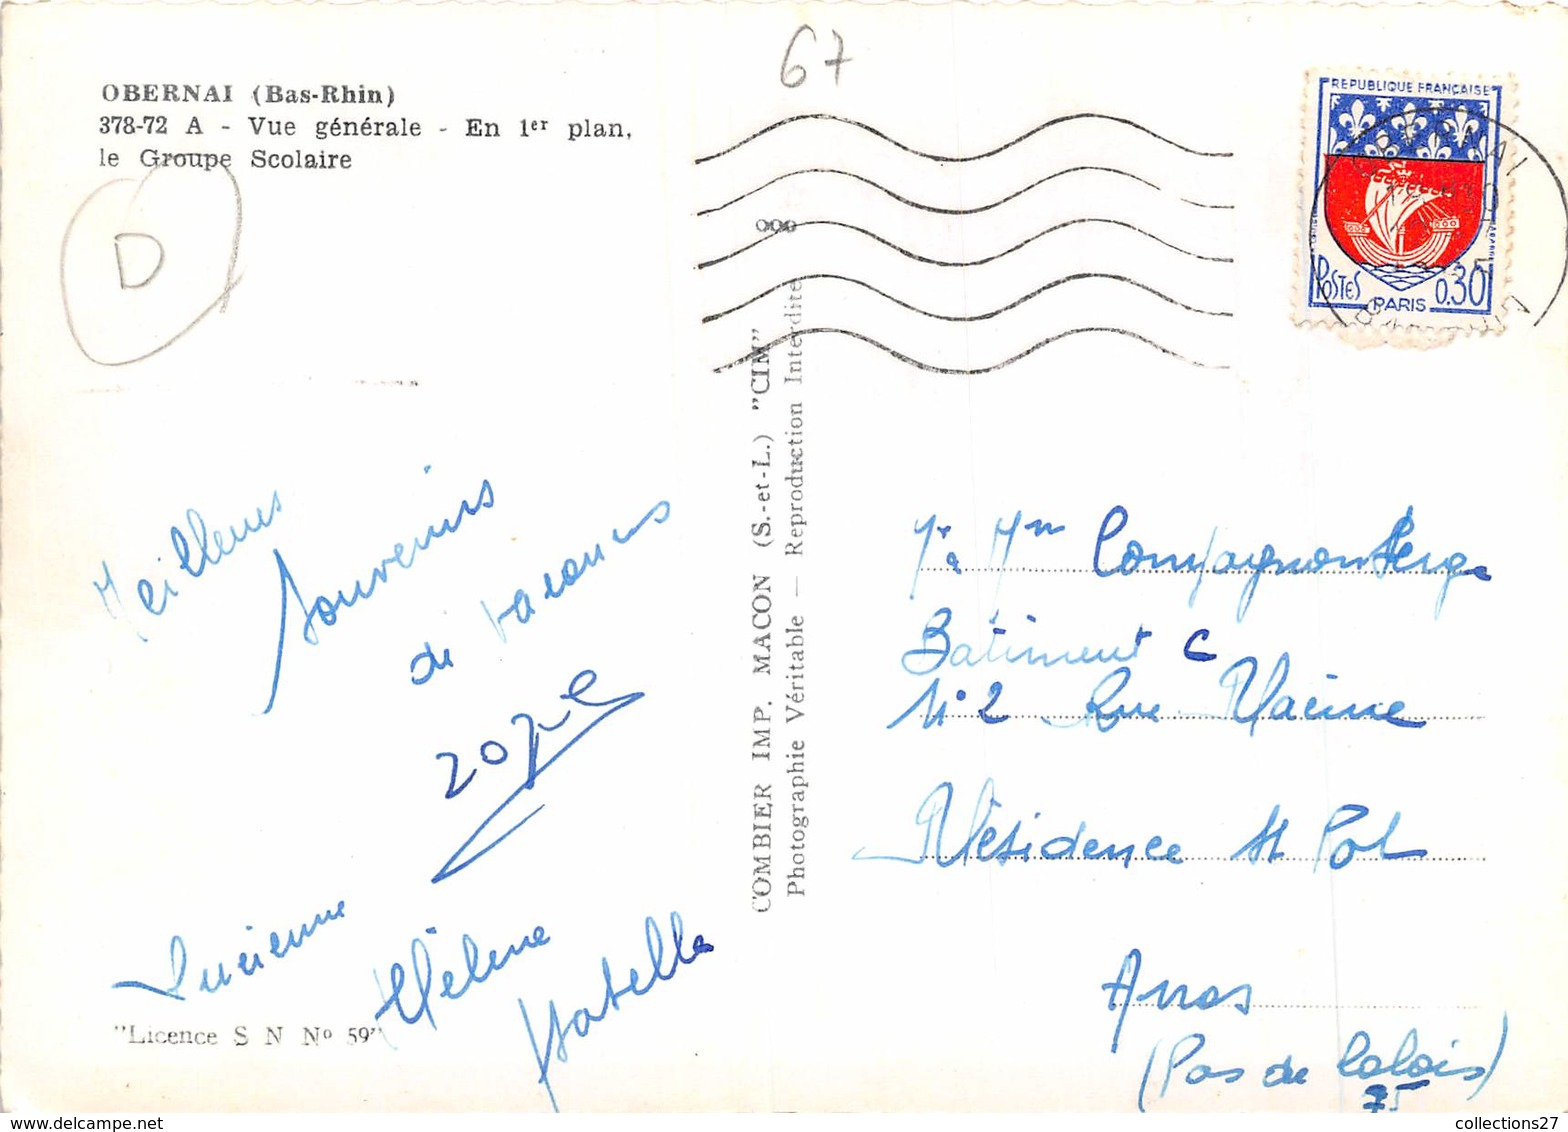 67
OBERNAI (Bas-Rhin)
378-72 A - Vue générale - En 1er plan,
le Groupe Scolaire
D
REPUBLIQUE FRANÇAISE
POSTES
0.30
PARIS
OBERNAI
COMBIER IMP. MACON (S.-et-L.) "CIM"
Photographie Véritable — Reproduction Interdite
Meilleurs
souvenirs
de vacances
Lucienne
Hélène
Isabelle
"Licence S N No 59"
Mr Mm Compagnon Serge
Bâtiment C
N°2 Rue Racine
Résidence St Pol
Arras
(Pas de Calais)
75
collections27